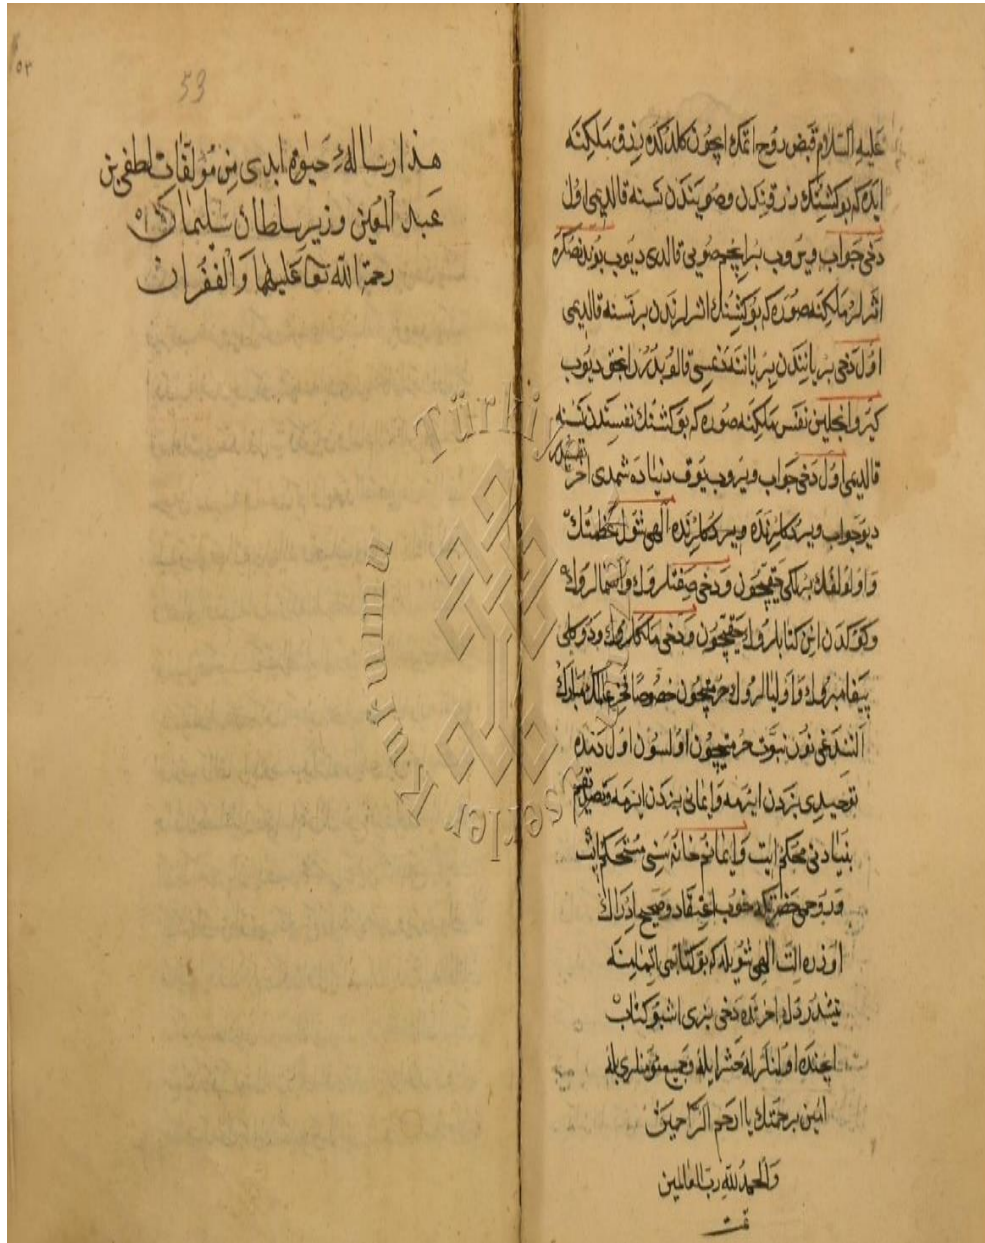 عليه السلام قبض روح اتمك ايچون كلدكده رزق ملكنه
ايده كه بو كشينك رزقندن وصوينندن نسنه قالديمى اول
دخى جواب ويروب بر ايچم صويى قالدى ديوب بوندنصكره
اثرلر ملكنه صوره كه بو كشينك اثرلرندن بر نسنه قالديمى
اول دخى بر يانندن بر ياننه دخسى قالوبدر انجق ديوب
كيرو انجلين نفس ملكنه صوره كه بو كشينك نفسندن نسنه
قالديمى اول دخى جواب ويروب يوق دنياده شمدى اخر نفسيدر
ديو جواب ويردكلرنده ويردكلرنده الهى شول عظمتك
و اولولغك برلكى حقيچون ودخى صفتلروك واسمالروك
وكوكدن اينن كتابلروك حقيچون ودخى ملكلروك ودوكلى
پيغامبروك واوليالروك حرمتيچون خصوصا فخر عالمك مبارك
النندغى نور نبوت حرمتيچون اولسون اول دمده
توحيدى بزدن ايرمه وايمانى بزدن ايرمه وتصديقم
بنيادنى محكم ايت وايمانم خانه سنى مستحكم ايت
وروحمى حضرتكه خوب اعتقاد وصحيح ادراك
اوزره الت الهى شويله كه بو كتابى اتمامنه
يتشدردك اخرتده دخى بزى اشبو كتاب
ايچنده اولنلرله حشر ايله وجميع مؤمنلرى بله
امين برحمتك يا ارحم الراحمين
والحمد لله رب العالمين
تمت
٥٣
53
هذا رسالهٔ حيوة ابدى من مؤلفات لطفى بن
عبد المعين وزير سلطان سليمان
رحمة الله تعا عليهما والغفران
Türkiye Yazma Eserler Kurumu